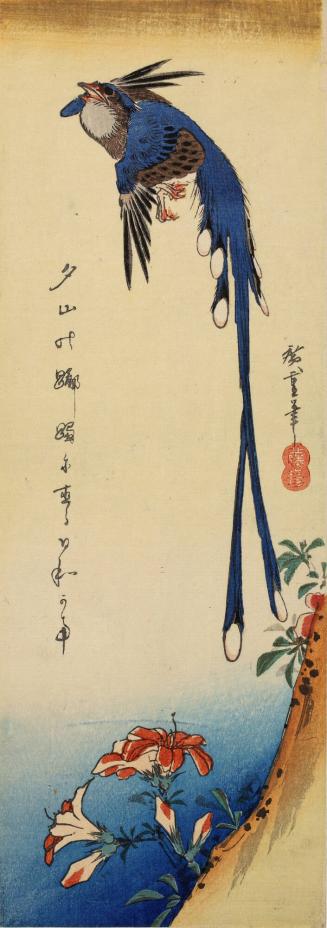 夕山の躑躅に直る日和かな
廣重筆